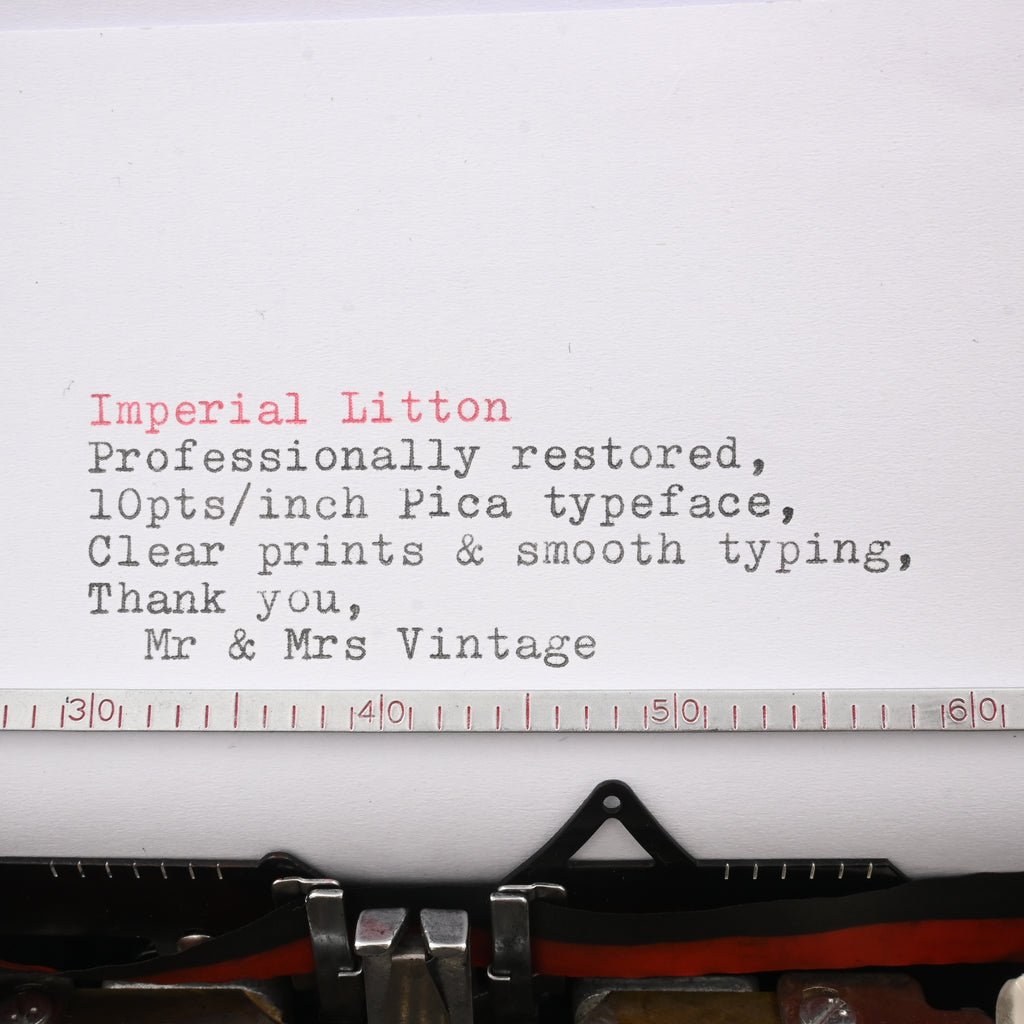 Imperial Litton
Professionally restored,
10pts/inch Pica typeface,
Clear prints & smooth typing,
Thank you,
Mr & Mrs Vintage
30 40 50 60